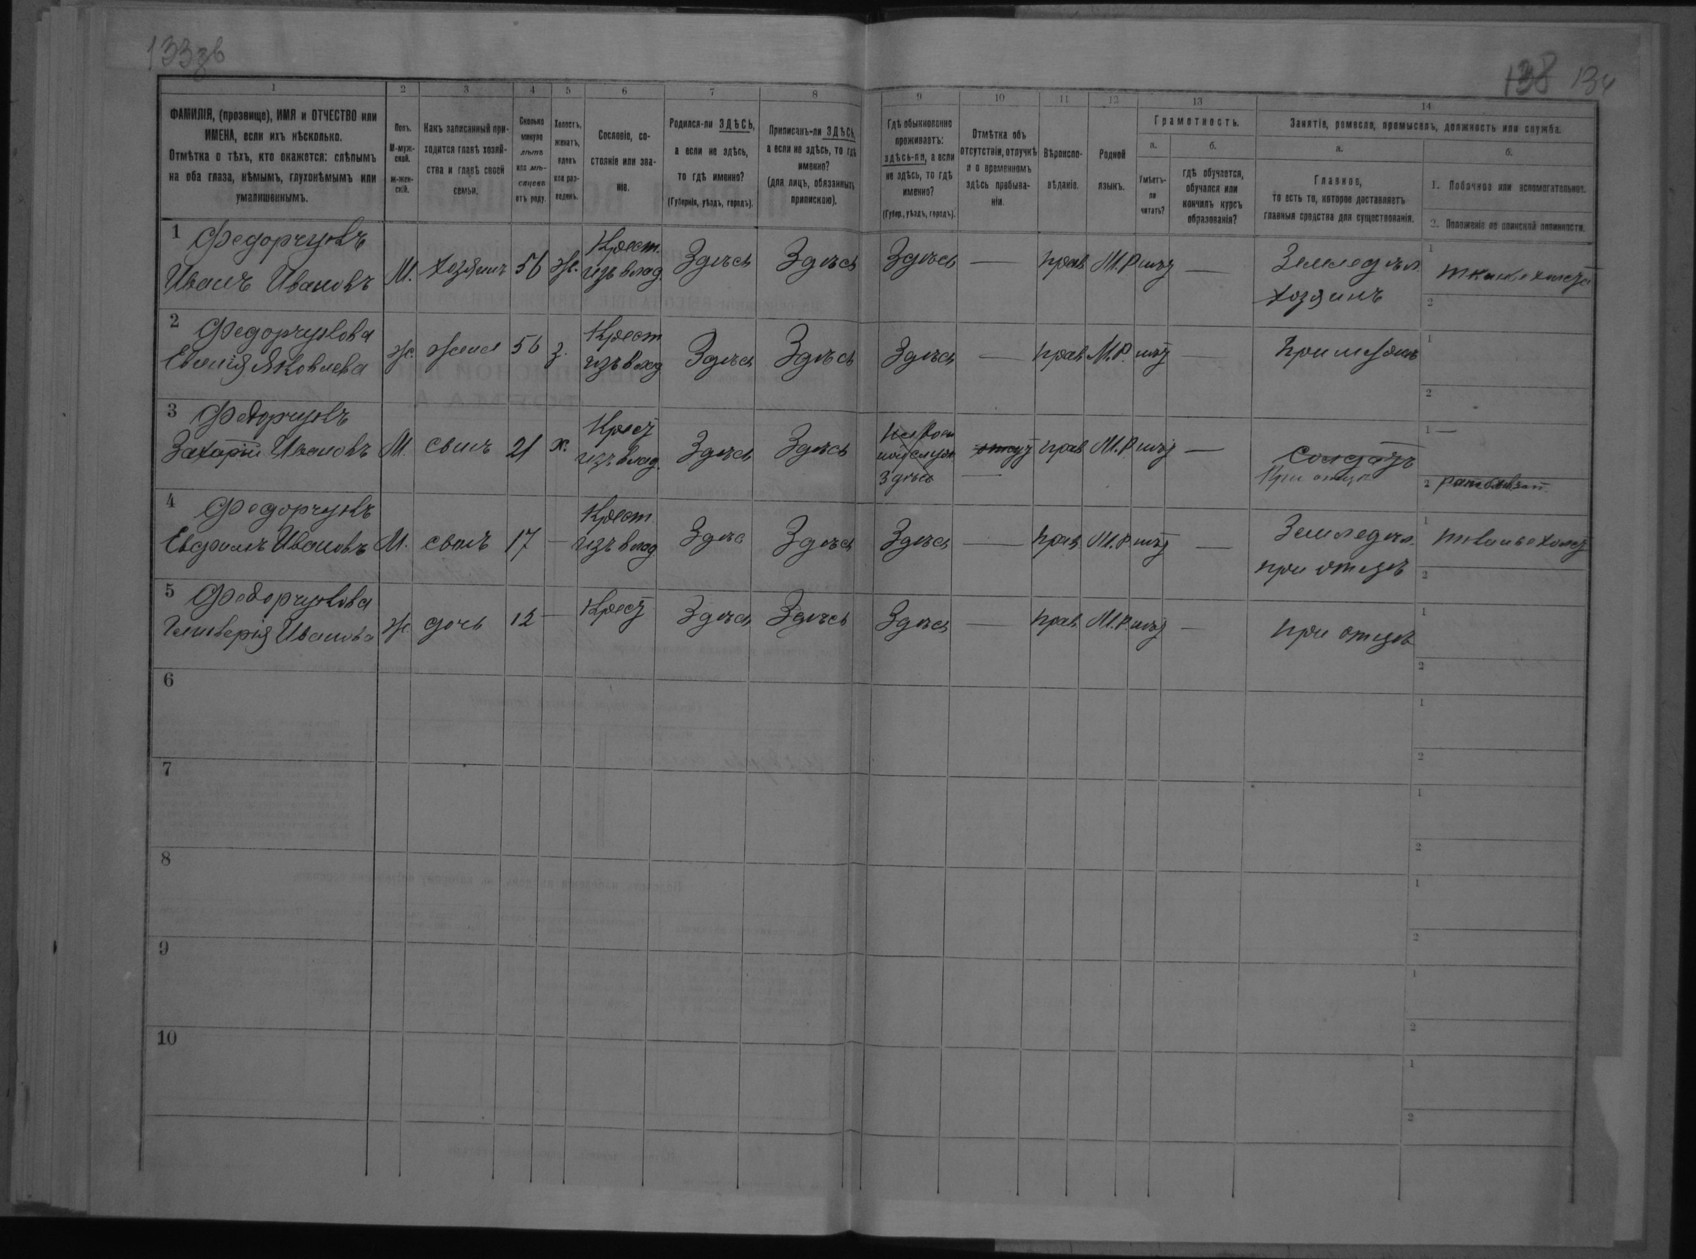 133об
138 134
1 2 3 4 5 6 7 8 9 10 11 12 13 14
ФАМИЛІЯ, (прозвище), ИМЯ и ОТЧЕСТВО или
ИМЕНА, если ихъ нѣсколько.
Отмѣтка о тѣхъ, кто окажется: слѣпымъ
на оба глаза, нѣмымъ, глухонѣмымъ или
умалишеннымъ.
Полъ.
М-муж-
ской.
ж-жен-
скій.
Какъ записанный при-
ходится главѣ хозяй-
ства и главѣ своей
семьи.
Сколько
минуло
лѣтъ
или мѣ-
сяцевъ
отъ роду.
Холостъ,
женатъ,
вдовъ
или раз-
веденъ.
Сословіе, со-
стояніе или зва-
ніе.
Родился-ли ЗДѢСЬ,
а если не здѣсь,
то гдѣ именно?
(Губернія, уѣздъ, городъ).
Приписанъ-ли ЗДѢСЬ,
а если не здѣсь, то гдѣ
именно?
(для лицъ, обязанныхъ
припискою).
Гдѣ обыкновенно
проживаетъ:
здѣсь-ли, а если
не здѣсь, то гдѣ
именно?
(Губер., уѣздъ, городъ).
Отмѣтка объ
отсутствіи, отлучкѣ
и о временномъ
здѣсь пребыва-
ніи.
Вѣроиспо-
вѣданіе.
Родной
языкъ.
Грамотность.
а.
Умѣетъ-
ли
читать?
б.
гдѣ обучается,
обучался или
кончилъ курсъ
образованія?
Занятіе, ремесло, промыселъ, должность или служба.
а.
Главное,
то есть то, которое доставляетъ
главныя средства для существованія.
б.
1. Побочное или вспомогательное.
2. Положеніе по воинской повинности.
1 Федорчуковъ
Иванъ Ивановъ М. Хозяинъ 56 ж. Крест. изъ влад. Здѣсь Здѣсь Здѣсь — прав М.Р. — Земледѣл. Хозяинъ
2 Федорчукова
Яковлева ж. жена 56 з. Крест. изъ влад. Здѣсь Здѣсь Здѣсь — прав М.Р. — При мужѣ
3 Федорчуковъ
Захарій Ивановъ М. сынъ 21 х. Крест изъ влад. Здѣсь Здѣсь Здѣсь — прав М.Р — Солдатъ При отцѣ
4 Федорчуковъ
Ивановъ М. сынъ 17 — Крест. изъ влад Здѣсь Здѣсь Здѣсь — прав М.Р — Земледѣл. при отцѣ
5 Федорчукова
Ивановa ж. дочь 12 — Крест Здѣсь Здѣсь Здѣсь — прав М.Р — при отцѣ
6
7
8
9
10